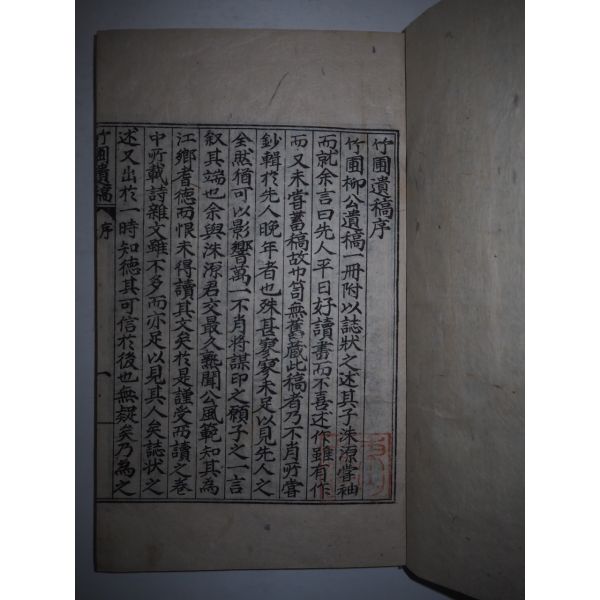 竹圃遺稿序
竹圃柳公遺稿一冊附以誌狀之述其子洙源甞袖
而就余言曰先人平日好讀書而不喜述作雖有作
而又未嘗蓄稿故巾笥無舊藏此稿者乃不肖所嘗
鈔輯於先人晩年者也殊甚寥寥未足以見先人之
全然猶可以影響萬一不肖將謀印之願子之一言
叙其端也余與洙源君交最久熟聞公風範知其為
江鄉耆德而恨未得讀其文矣於是謹受而讀之卷
中所載詩雜文雖不多而亦足以見其人矣誌狀之
述又出於一時知德其可信於後也無疑矣乃為之
竹圃遺稿 序 一